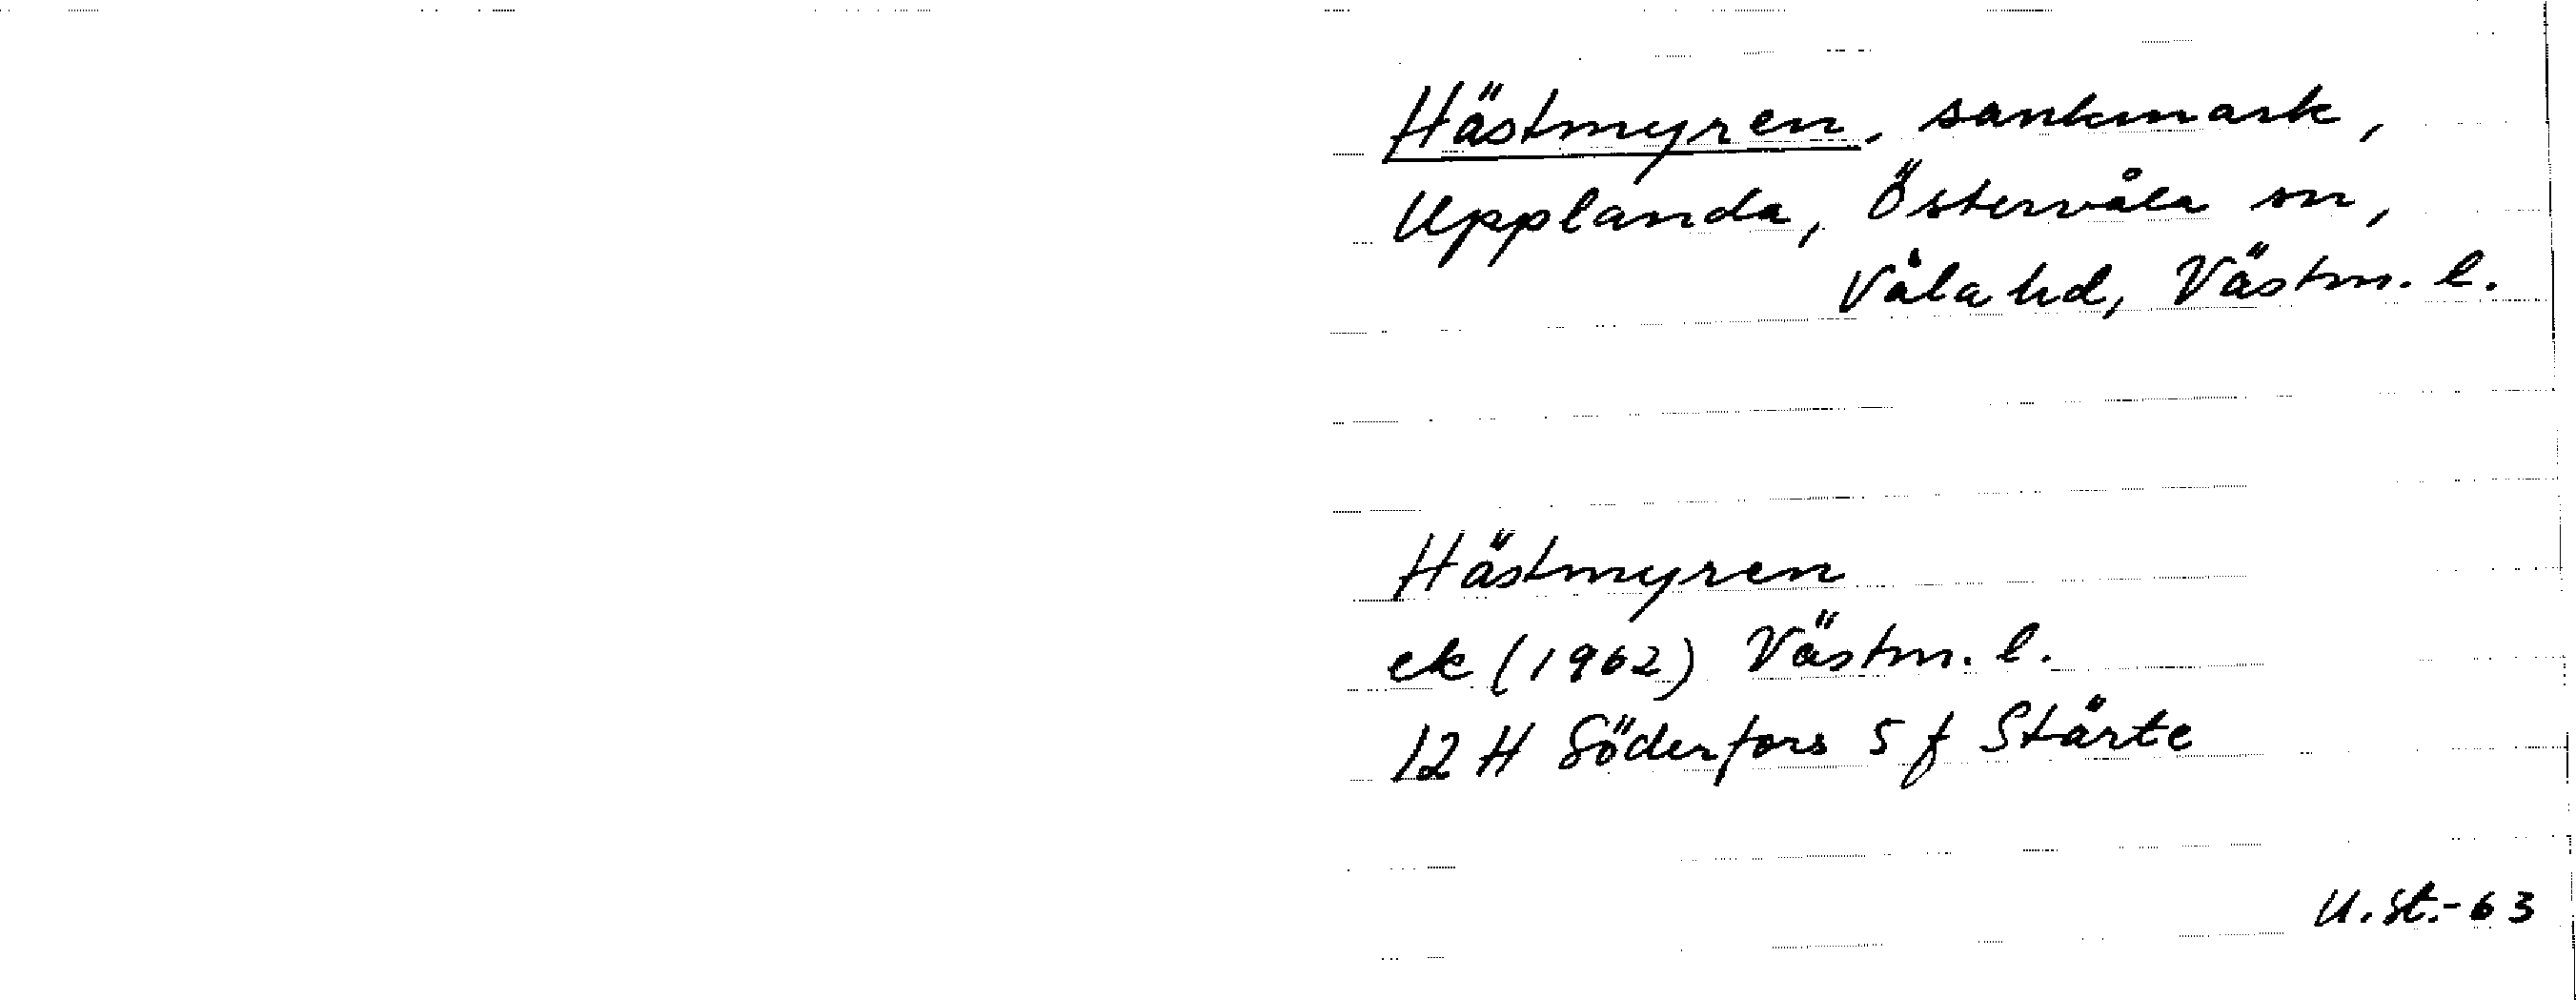 Hästmyren, sankmark,
Upplanda, Östervåla sn,
Våla hd, Västm. l.
Hästmyren
ek (1962) Västm. l.
12 H Söderfors 5 f Stärte
U.St.-63